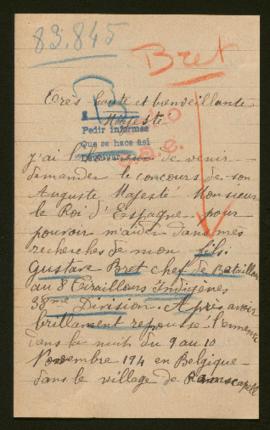 83.845
Bret
Très haute et bienveillante
Majesté
Pedir informes
Que se hace así
j'ai l'honneur de venir
demander le concours de son
Auguste Majesté Monsieur
le Roi d'Espagne pour
pouvoir m'aider dans mes
recherches de mon fils
Gustave Bret Chef de Bataillon
au 8 Tirailleurs Indigènes
38me Division. Après avoir
brillament repoussé l'ennemi
dans la nuit du 9 au 10
Novembre 194 en Belgique
dans le village de Ramscapelle